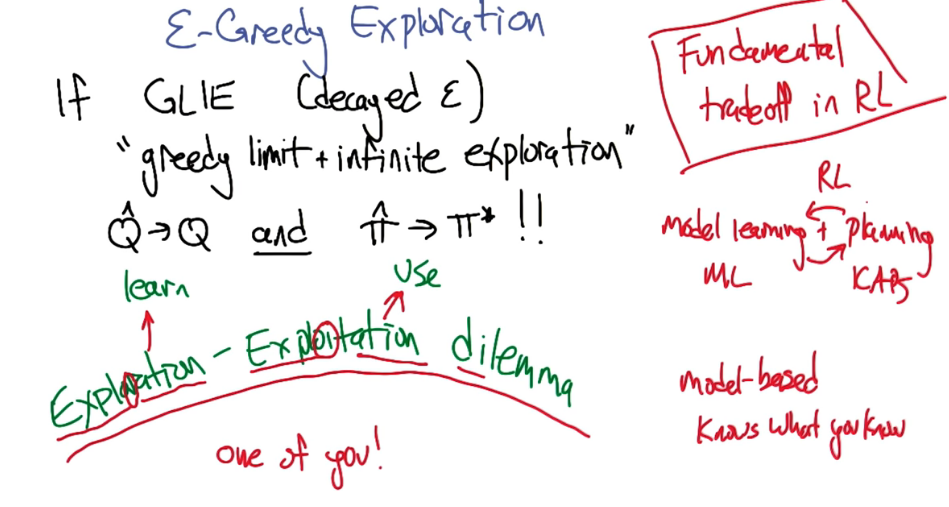 ε-Greedy Exploration
If GLIE (decayed ε)
"greedy limit + infinite exploration"
Q̂ → Q and π̂ → π* !!
learn
use
Exploration - Exploitation dilemma
one of you!
Fundamental
tradeoff in RL
RL
model learning + planning
ML
model-based
knows what you know